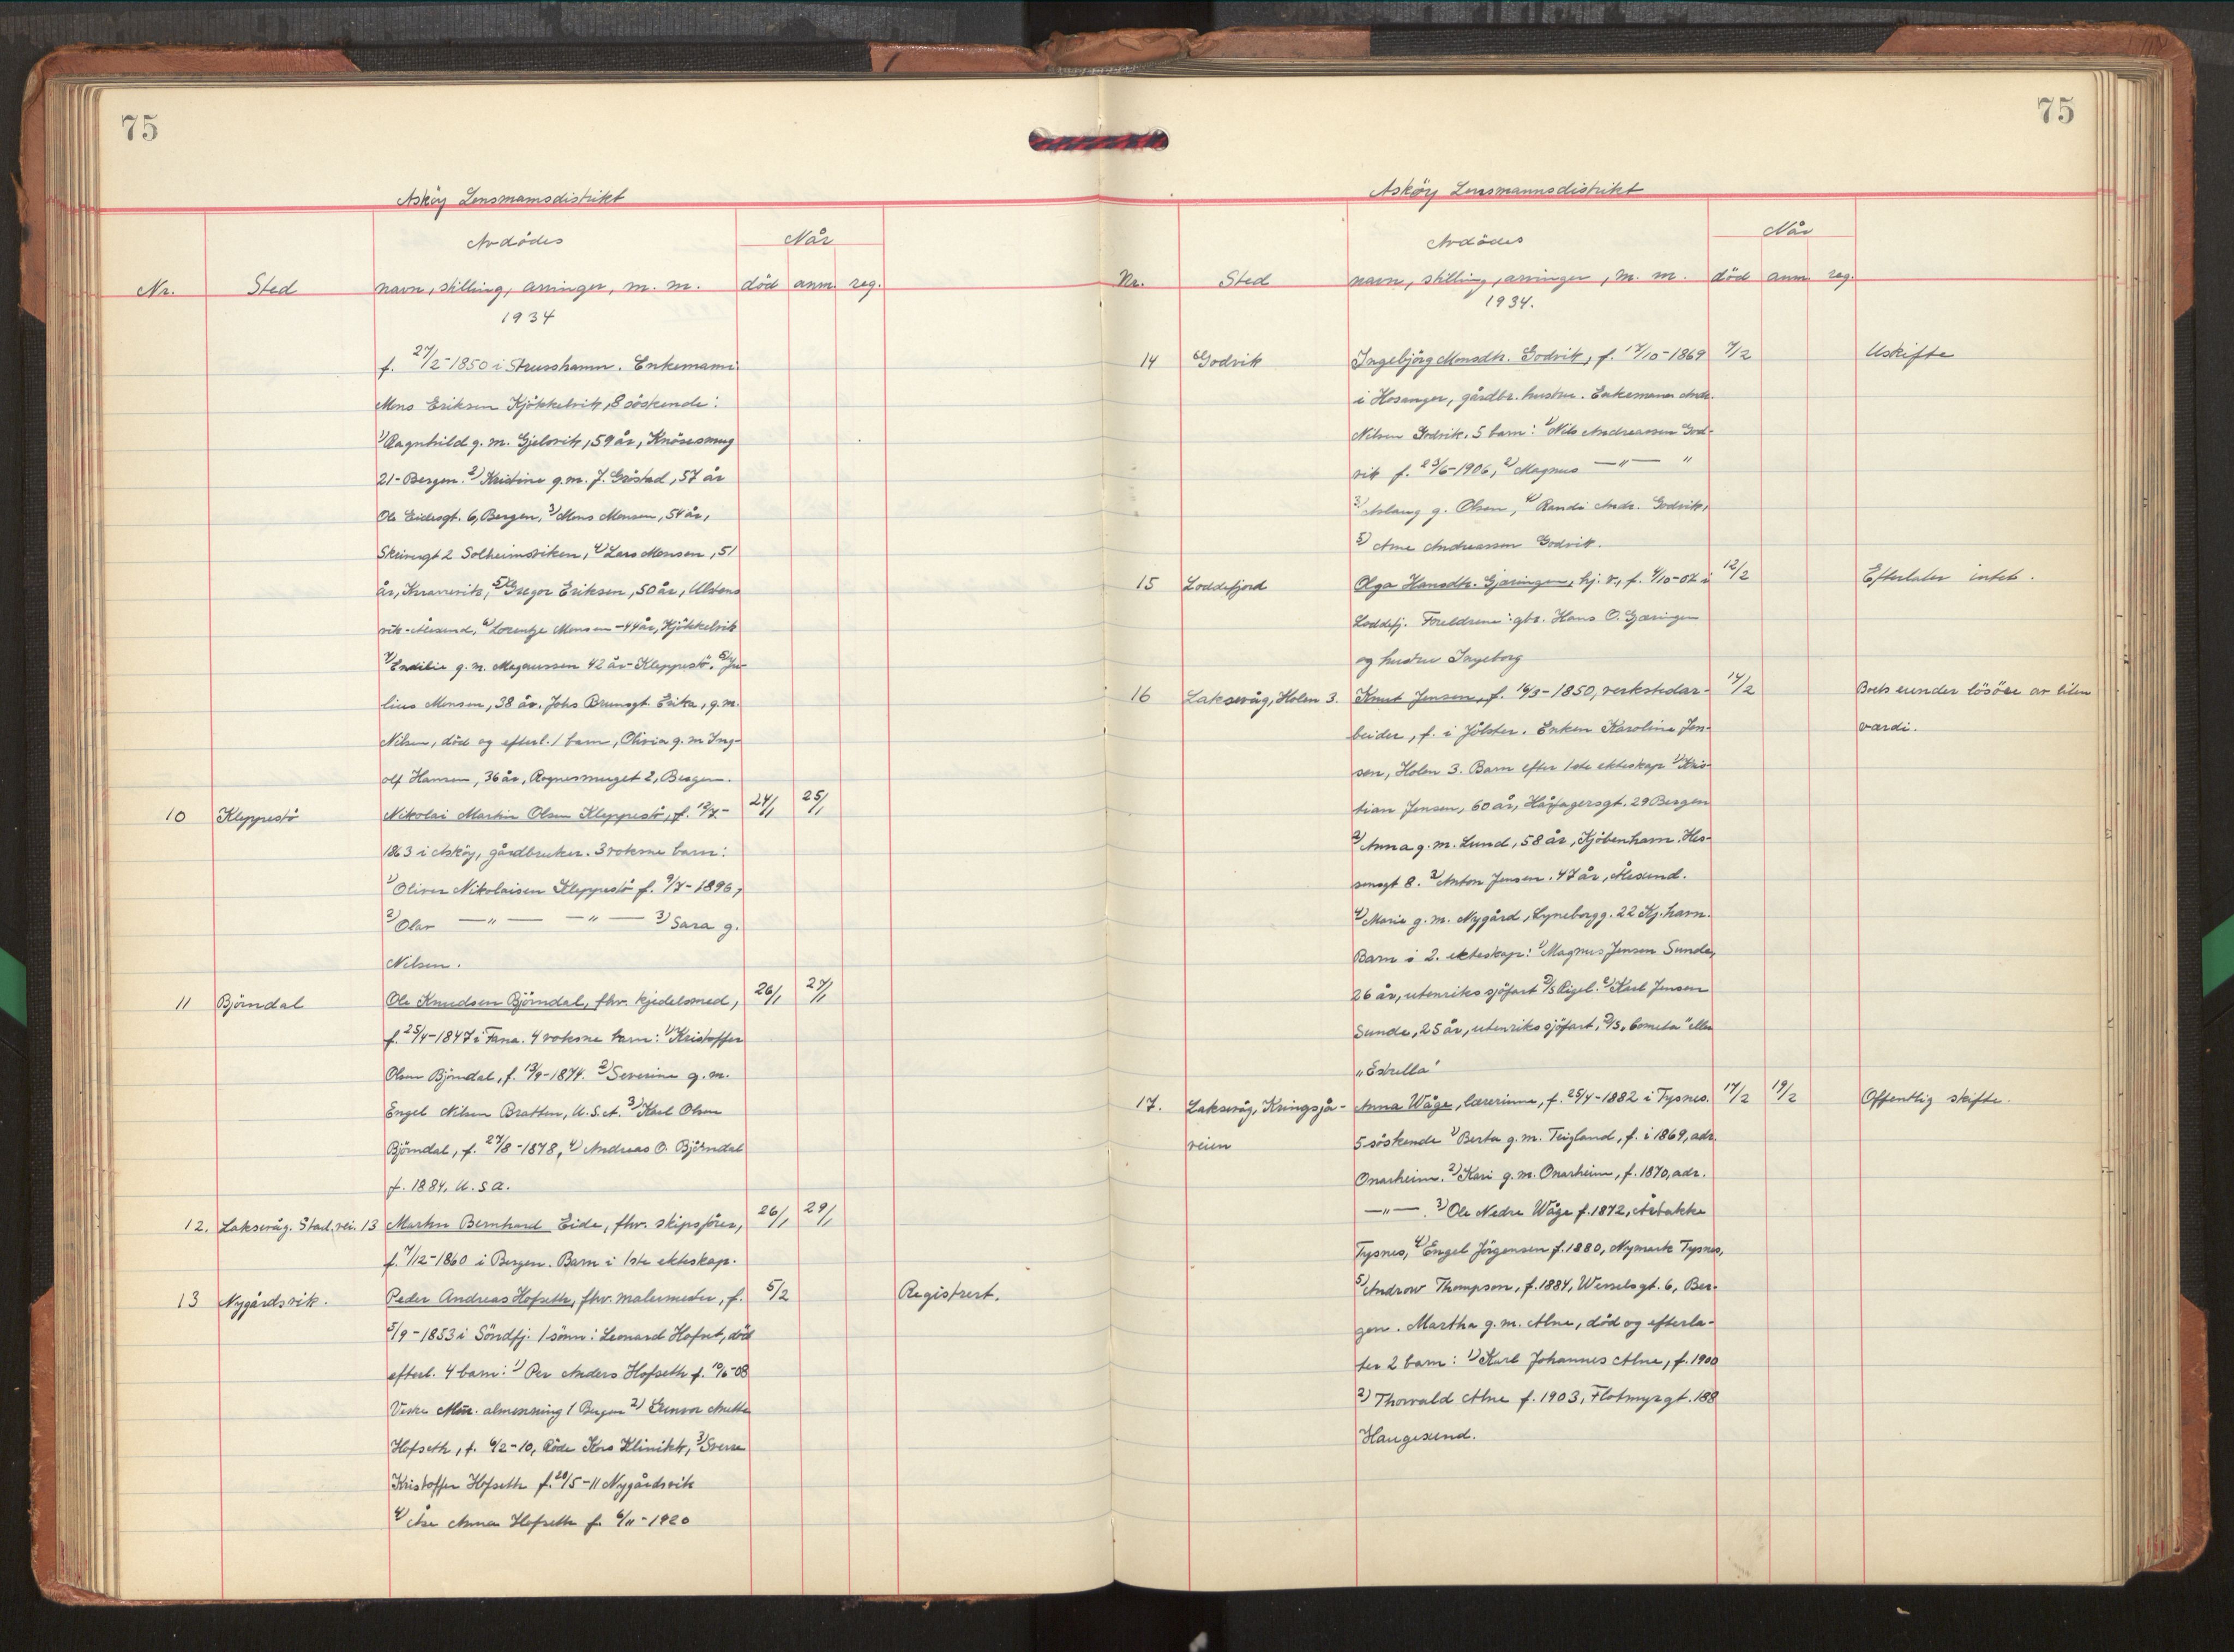 75
Asköy Lensmansdistrikt
Avdödes
Når
Nr. Sted navn, stilling, arvinger, m. m. död anm. reg.
1934
f. 27/2-1850 i Strusshamn. Enkemann:
Mons Eriksen Kjökkelvik, 8 söskende:
1) Ragnhild g. m. Gjelvik, 59 år, Knösesmug
21-Bergen. 2) Kristine g. m. J. Gröstad, 57 år
Ole Eidesgt. 6, Bergen, 3) Mons Monsen, 54 år,
2 Solheimsviken, 4) Lars Monsen, 51
år, 5) Gregor Eriksen, 50 år,
vik-Ålesund, 6) Lorentze Monsen - 44 år, Kjökkelvik
7) Emilie g. m. Magnussen 42 år - Kleppestö. 8) Ju-
lius Monsen, 38 år. Johs Brunsgt. Erika, g. m.
Nilsen, död og efterl. 1 barn, Olivia g. m. Ing-
olf Hansen, 36 år, 2, Bergen.
10 Kleppestö Nikolai Martin Olsen Kleppestö, f. 12/7- 24/1 25/1
1863 i Asköy, gårdbruker. 3 voksne barn:
1) Oliver Nikolaisen Kleppestö f. 9/7-1896,
2) Olav —"— —"— 3) Sara g.
Nilsen.
11 Björndal Ole Knudsen Björndal, fhv. kjedelsmed, 26/1 27/1
f. 25/4-1847 i Fana. 4 voksne barn: 1) Kristoffer
Olsen Björndal, f. /9-1874. 2) Severine g. m.
Engel Nilsen Bratten, U.S.A. 3) Karl Olsen
Björndal, f. 27/8-1878, 4) Andreas O. Björndal
f. 1884, U.S.A.
12. Laksevåg. Stad.vei. 13 Martin Bernhard Eide, fhv. skipsförer, 26/1 29/1
f. 7/12-1860 i Bergen. Barn i 1ste ekteskap.
13 Nygårdsvik. Peder Andreas Hofseth, fhv. malermester, f. 5/2 Registrert.
5/9-1853 i Söndfj. 1 sönn: Leonard Hofset, död
efterl. 4 barn: 1) Per Anders Hofseth f. 10/6-08
Vestre Mur. almenning 1 Bergen 2) Gunvor Anette
Hofseth, f. 6/2-10, Röde Kors Klinikk, 3) Sverre
Kristoffer Hofseth f. 20/5-11 Nygårdsvik
4) Åse Anna Hofseth f. 6/11-1920
75
Asköy Lensmannsdistrikt
Avdödes
Når
Nr. Sted navn, stilling, arvinger, m. m. död anm. reg.
1934.
14 Godvik Ingebjörg Monsdtr. Godvik, f. 17/10-1869 7/2 Uskifte
i Hosanger, gårdbr. hustru. Enkemann Andr.
Nilsen Godvik. 5 barn: 1) Nils Andreassen God-
vik f. 23/6-1906, 2) Magnus —"— "
3) Aslaug g. Olsen, 4) Randi Andr. Godvik,
5) Arne Andreassen Godvik.
15 Loddefjord Olga Hansdtr. Gjæringen, hj. v., f. 4/10-07 i 12/2 Efterlater intet.
Loddefj. Foreldrene: gbr. Hans O. Gjæringen
og hustru Ingeborg
16 Laksevåg, Holen 3. Knut Jensen, f. 16/3-1850, verkstedar- 14/2 Boets eiendeler lösöre av liten
beider, f. i Jölster. Enken Karoline Jen- verdi.
sen, Holen 3. Barn efter 1ste ekteskap 1) Kris-
tian Jensen, 60 år, Hårfagersgt. 29 Bergen
2) Anna g. m. Lund, 58 år, Kjöbenhavn, Hes-
sensgt 8. 3) Anton Jensen. 47 år, Ålesund.
4) Marie g. m. Nygård, Lyneborgg. 22 Kj.havn.
Barn i 2. ekteskap: 1) Magnus Jensen Sunde,
26 år, utenriks sjöfart D/S Rigel. 2) Karl Jensen
Sunde, 25 år, utenriks sjöfart, D/S „Cometa" eller
„Estrella"
17. Laksevåg, Kringsjå- Anna Våge, lærerinne, f. 25/4-1882 i Tysnes. 17/2 19/2 Offentlig skifte.
veien 5 söskende 1) Berta g. m. Teigland, f. i 1869, adr.
Onarheim. 2) Kari g. m. Onarheim, f. 1870, adr.
—"—. 3) Ole Nedre Våge f. 1872,
Tysnes, 4) Engel Jörgensen f. 1880, Nymark Tysnes,
5) Androw Thompson, f. 1884, Wesselsgt. 6, Ber-
gen. Martha g. m. Alne, död og efterla-
ter 2 barn: 1) Karl Johannes Alne, f. 1900
2) Thorvald Alne f. 1903, Flotmyrgt. 188
Haugesund.